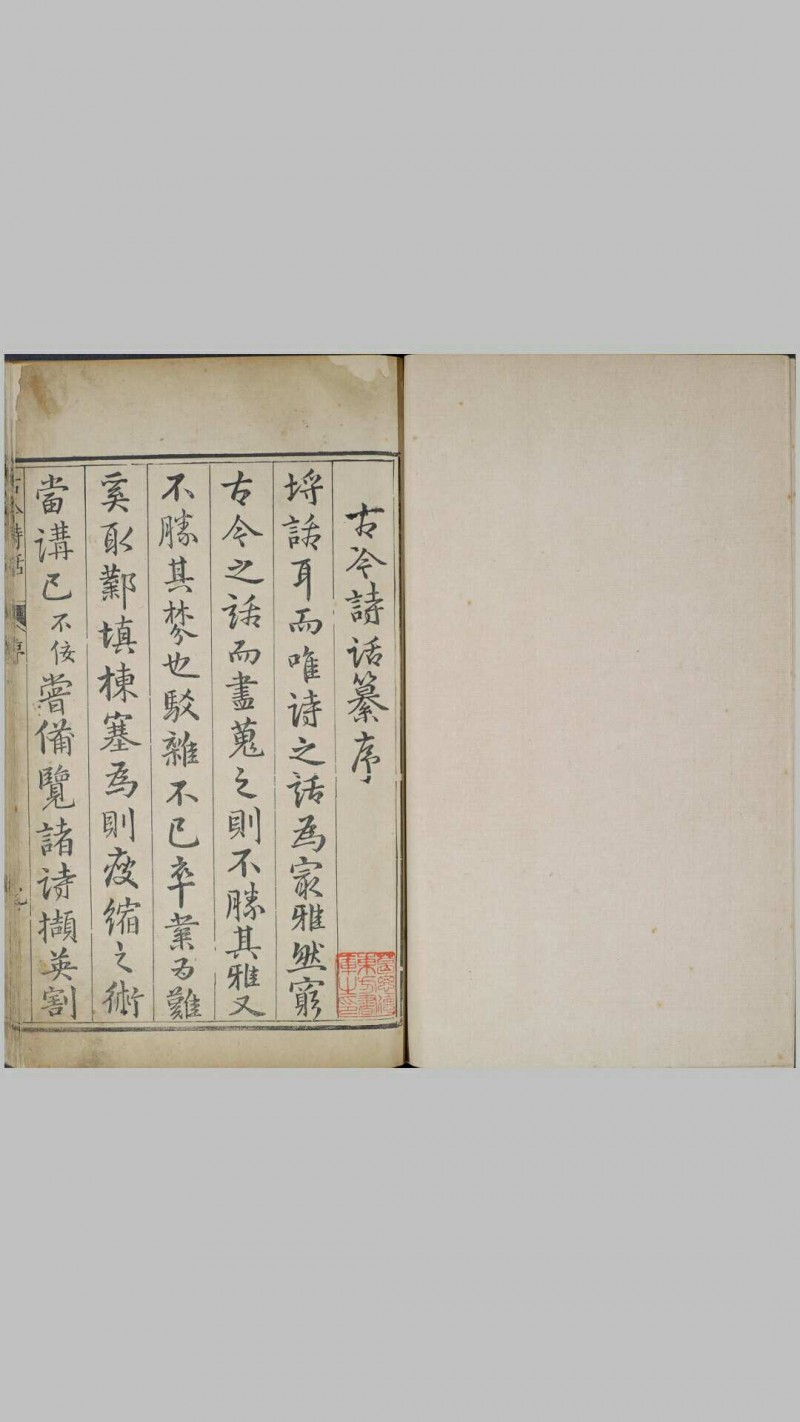 古今詩話纂序
埒話耳而唯诗之話為最雅然窮
古今之话而盡蒐之則不勝其雅又
不勝其棼也駁雜不已卒業为難
奚取鄴填棟塞為則瘦縮之術
當講已不佞嘗備覽諸诗擷英割
古今詩話 序